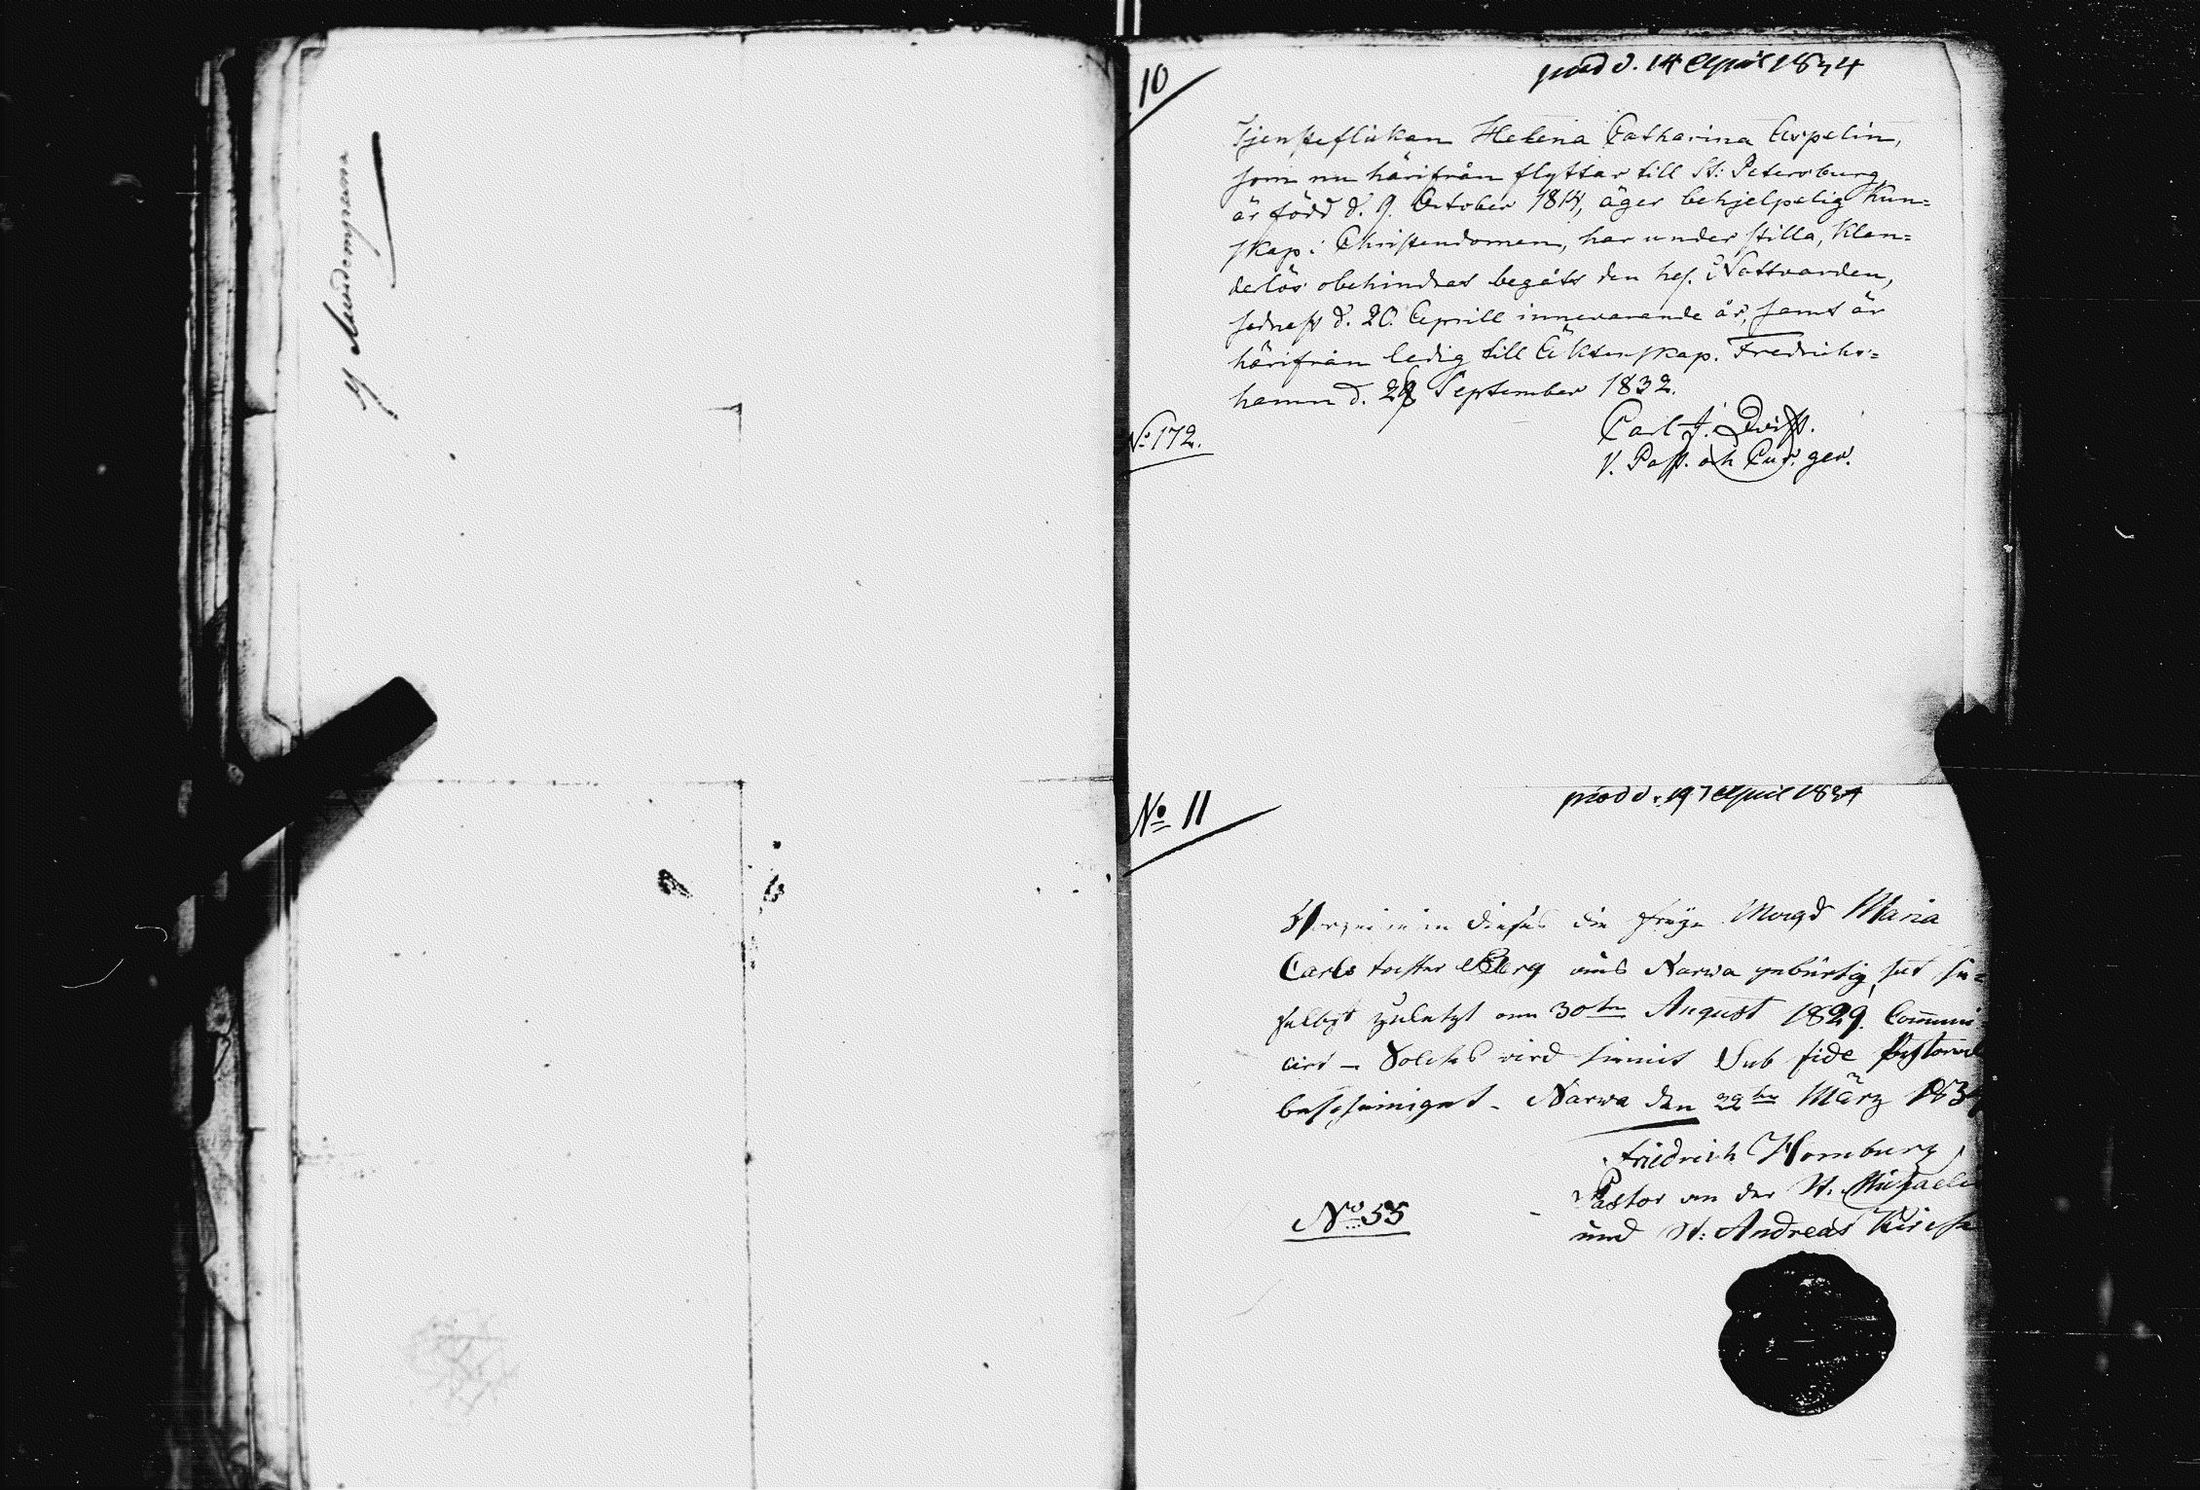 10
prod d. 14 April 1834
Tjensteflickan Helena Catharina Aspelin,
som nu härifrån flyttar till St: Petersburg,
är född d. 9. October 1814, äger behjelpelig Kun=
skap i Christendomen, har under stilla, klan=
derlös obehindrat begått den hel. Nattvarden,
sednast d. 20. Aprill innevarande år, samt är
härifrån ledig till Äktenskap. Fredrichs=
hamn d. 28 September 1832.
Carl J.
V. Past. och Cur. ger.
No 172.
No 11
prod d. 19 April 1834
dieses die Magd Maria
Carls tochter Berg aus Narwa gebürtig, hat hie=
selbst zuletzt am 30ten August 1829. Communi
cirt – Solches wird hiemit Sub fide Pastorali
bescheiniget. Narwa den 22ten März 1834
Friedrich Hornburg
Pastor an der St. Michaelis
und St: Andreas Kirche
No 55